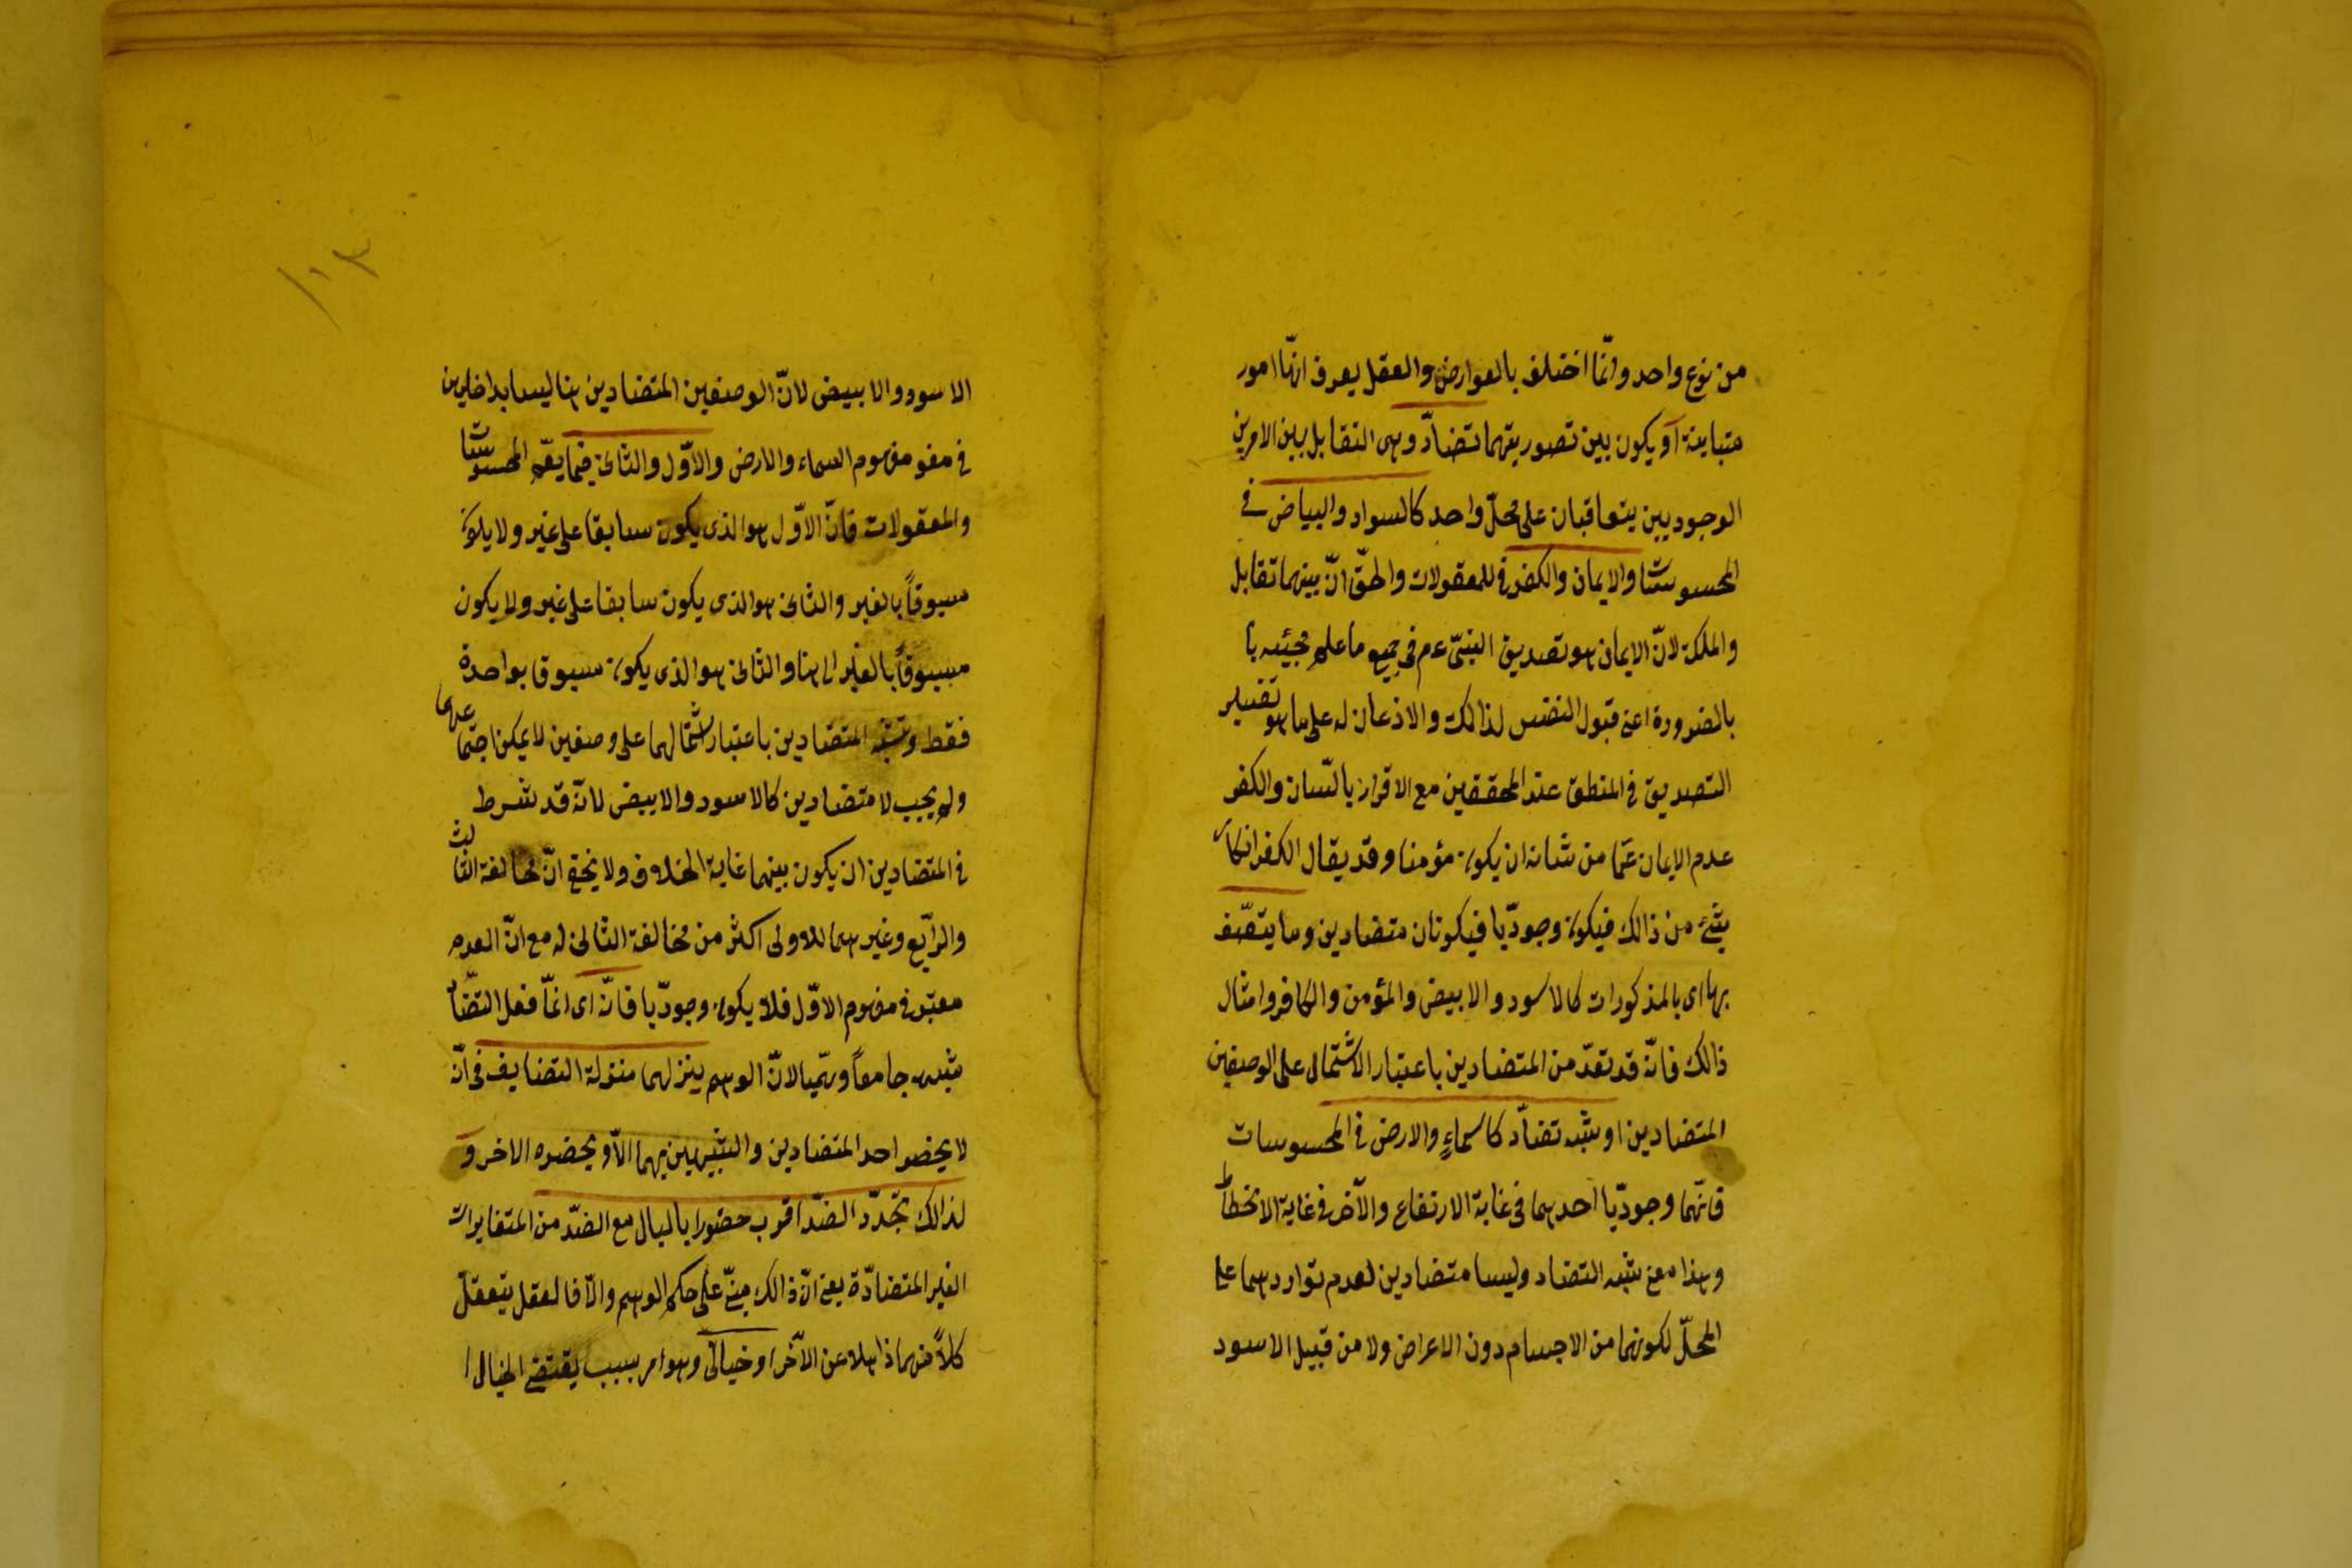 من نوع واحد وانّما اختلف بالعوارض والعقل يعرف انّها امور
متباينة او يكون بين تصوريتهما تضادّ وهى التقابل بين الامرين
الوجوديين يتعاقبان على محلّ واحد كالسواد والبياض في
المحسوسات والايمان والكفر في المعقولات والحقّ انّ بينهما تقابل
والملكة لانّ الايمان هو تصديق النبىّ عم في جميع ما علم مجيئه با
بالضرورة اعنى قبول النفس لذالك والاذعان له على ما هو تفسير
التصديق في المنطق عند المحققين مع الاقرار باللسان والكفر
عدم الايمان عمّا من شانه ان يكون مؤمنا وقد يقال الكفر انكار
شئ من ذالك فيكون وجوديّا فيكونان متضادين وما يتصّف
بها اى بالمذكورات كالاسود والابيض والمؤمن والكافر وامثال
ذالك فانّه قد تعدّ من المتضادين باعتبار الاشتمال على الوصفين
المتضادين او شبه تضادّ كالسماء والارض في المحسوسات
فانّهما وجوديّا احدهما في غاية الارتفاع والآخر في غاية الانحطاط
وهذا معنى شبه التضاد وليسا متضادين لعدم تواردهما على
المحلّ لكونهما من الاجسام دون الاعراض ولا من قبيل الاسود
١١٣
الاسود والابيض لانّ الوصفين المتضادين هنا ليسا بداخلين
في مفهوم السماء والارض والاوّل والثانى فيما يعمّ المحسوسات
والمعقولات فانّ الاوّل هو الذى يكون سابقا على غير ولا يكون
مسبوقاً بالغير والثانى هو الذى يكون سابقا على غير ولا يكون
مسبوقاً بالغير الى هنا والثانى هو الذى يكون مسبوقا بواحدة
فقط وشبه المتضادين باعتبار اشتمالهما على وصفين لا يمكن اجتماعهما
ولم يجب لا متضادين كالاسود والابيض لانّه قد شرط
في المتضادين ان يكون بينهما غاية الخلاف ولا يخفى انّ مخالفة الثالث
والرابع وغيرهما للاولى اكثر من مخالفة الثانى له مع انّ العدم
معتبر في مفهوم الاوّل فلا يكون وجوديّا فانّه اى انّما فعل التضّاد
شبهه جامعاً وهميّا لانّ الوهم ينزلهما منزلة التضايف في انّه
لا يحضر احد المتضادين والشبيهين بهما الاّ ويحضره الاخر و
لذالك تجّد الضدّ اقرب حضورا بالبال مع الضدّ من المتغايرات
الغير المتضادّة يعنى انّ ذالك مبنىّ على حكم الوهم والّا فالعقل يتعقل
كلاًّ منهما ذاهلا عن الآخر او خيالىّ وهو امر بسبب يقتضى الخيال ا